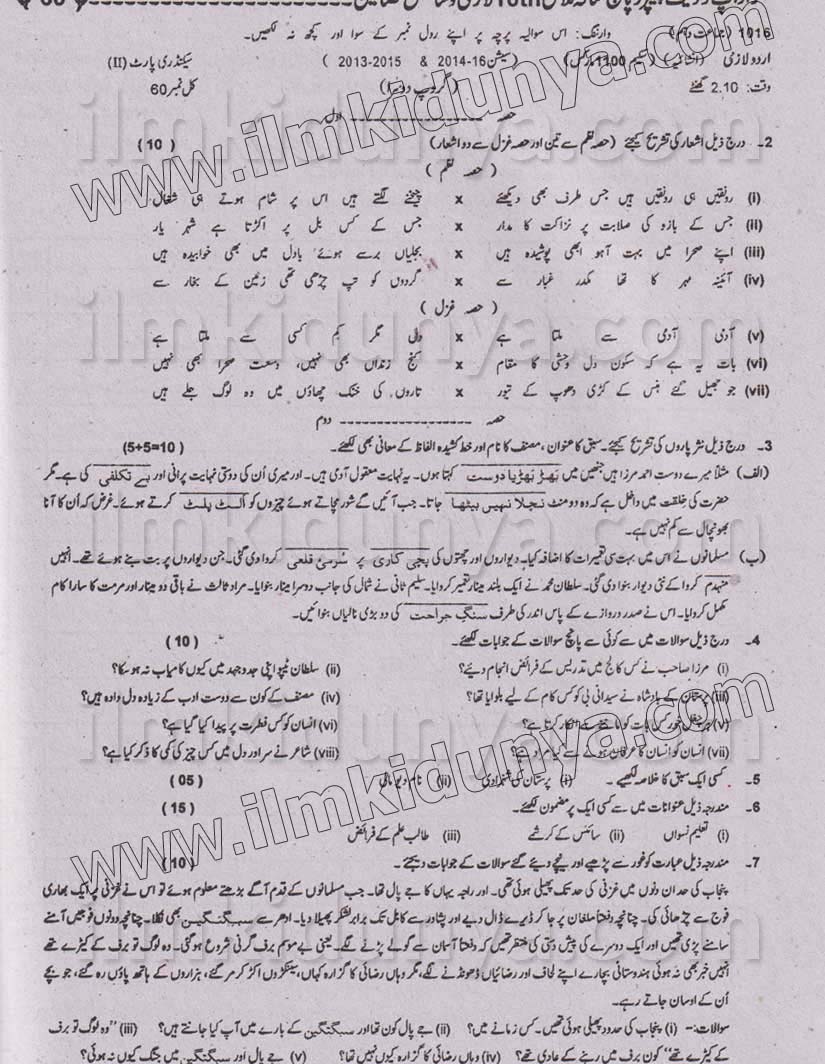 1016 (جماعت دہم) وارننگ: اس سوالیہ پرچہ پر اپنے رول نمبر کے سوا اور کچھ نہ لکھیں۔
اردو لازمی (انشائیہ) (سکیم 1100 مارکس) (سیشن 16-2014 & 2015-2013) سیکنڈری پارٹ (II)
وقت: 2.10 گھنٹے (گروپ دوسرا) کل نمبر 60
حصہ ---------------- اول
2۔ درج ذیل اشعار کی تشریح کیجئے (حصہ نظم سے تین اور حصہ غزل سے دو اشعار) (10)
(حصہ نظم)
(i) رونقیں ہی رونقیں ہیں جس طرف بھی دیکھئے x چیخنے لگتے ہیں اس پر شام ہوتے ہی شغال
(ii) جس کے بازو کی صلابت پر نزاکت کا مدار x جس کے کس بل پر اکڑتا ہے شہر یار
(iii) اپنے صحرا میں بہت آہو ابھی پوشیدہ ہیں x بجلیاں برسے ہوئے بادل میں بھی خوابیدہ ہیں
(iv) آئینہ مہر کا تھا مکدر غبار سے x گردوں کو تپ چڑھی تھی زمین کے بخار سے
(حصہ غزل)
(v) آدمی آدمی سے ملتا ہے x دل مگر کم کسی سے ملتا ہے
(vi) بات یہ ہے کہ سکون دل وحشی کا مقام x کنج زنداں بھی نہیں، وسعت صحرا بھی نہیں
(vii) جو جھیل گئے ہنس کے کڑی دھوپ کے تیور x تاروں کی خنک چھاؤں میں وہ لوگ جلے ہیں
حصہ ---------------- دوم
3۔ درج ذیل نثر پاروں کی تشریح کیجئے۔ سبق کا عنوان، مصنف کا نام اور خط کشیدہ الفاظ کے معانی بھی لکھئے۔ (5+5=10)
(الف) مثلاً میرے دوست احمد مرزا ہیں جنھیں میں بھڑ بھڑیا دوست کہتا ہوں۔ یہ نہایت معقول آدمی ہیں۔ اور میری اُن کی دوستی نہایت پرانی اور بے تکلفی کی ہے۔ مگر
حضرت کی خلقت میں داخل ہے کہ وہ دو منٹ نچلا نہیں بیٹھا جاتا۔ جب آئیں گے شور مچاتے ہوئے چیزوں کو اُلٹ پلٹ کرتے ہوئے۔ غرض کہ اُن کا آنا
بھونچال سے کم نہیں ہے۔
(ب) مسلمانوں نے اس میں بہت سی تعمیرات کا اضافہ کیا۔ دیواروں اور چھتوں کی پچی کاری پر سُرمئی قلعی کروا دی گئی۔ جن دیواروں پر بت بنے ہوئے تھے۔ انھیں
منہدم کروا کے نئی دیوار بنوا دی گئی۔ سلطان محمد نے ایک بلند مینار تعمیر کروایا۔ سلیم ثانی نے شمال کی جانب دوسرا مینار بنوایا۔ مراد ثالث نے باقی دو مینار اور مرمت کا سارا کام
مکمل کروایا۔ اس نے صدر دروازے کے پاس اندر کی طرف سنگِ جراحت کی دو بڑی نالیاں بنوائیں۔
4۔ درج ذیل سوالات میں سے کوئی سے پانچ سوالات کے جوابات لکھئے۔ (10)
(i) مرزا صاحب نے کس کالج میں تدریس کے فرائض انجام دیئے؟ (ii) سلطان ٹیپو اپنی جدوجہد میں کیوں کامیاب نہ ہو سکا؟
(iii) پرستان کے بادشاہ نے سیدانی بی کو کس کام کے لیے بلوایا تھا؟ (iv) مصنف کے کون سے دوست ادب کے زیادہ دل دادہ ہیں؟
(v) ہر چغل خور کس بات کو ماننے سے انکار کرتا ہے؟ (vi) انسان کو کس فطرت پر پیدا کیا گیا ہے؟
(vii) انسان کو انسان کا عرفان ہونے سے کیا مراد ہے؟ (viii) شاعر نے سر اور دل میں کس چیز کی کمی کا ذکر کیا ہے؟
5۔ کسی ایک سبق کا خلاصہ لکھیے۔ (i) پرستان کی شہزادی (ii) نام دیو مالی (05)
6۔ مندرجہ ذیل عنوانات میں سے کسی ایک پر مضمون لکھئے۔ (15)
(i) تعلیم نسواں (ii) سائنس کے کرشمے (iii) طالب علم کے فرائض
7۔ مندرجہ ذیل عبارت کو غور سے پڑھیے اور نیچے دیئے گئے سوالات کے جوابات دیجئے۔ (10)
پنجاب کی حد ان دنوں میں غزنی کی حد تک پھیلی ہوئی تھی۔ اور راجہ یہاں کا جے پال تھا۔ جب مسلمانوں کے قدم آگے بڑھتے معلوم ہوئے تو اس نے غزنی پر ایک بھاری
فوج سے چڑھائی کی۔ چنانچہ دفعتاً ملغان پر جا کر ڈیرے ڈال دیے اور پشاور سے کابل تک برابر لشکر پھیلا دیا۔ ادھر سے سبکتگین بھی نکلا۔ چنانچہ دونوں فوجیں آمنے
سامنے پڑی تھیں اور ایک دوسرے کی پیش دستی کی منتظر تھیں کہ دفعتاً آسمان سے گولے پڑنے لگے۔ یعنی بے موسم برف گرنی شروع ہو گئی۔ وہ لوگ تو برف کے کیڑے تھے
انہیں خبر بھی نہ ہوئی ہندوستانی بچارے اپنے لحاف اور رضائیاں ڈھونڈنے لگے، مگر وہاں رضائی کا گزارہ کہاں، سینکڑوں اکڑ کر مر گئے، ہزاروں کے ہاتھ پاؤں رہ گئے، جو بچے
اُن کے اوسان جاتے رہے۔
سوالات:- (i) پنجاب کی حدود پھیلی ہوئی تھیں۔ کس زمانے میں؟ (ii) جے پال کون تھا اور سبکتگین کے بارے میں آپ کیا جانتے ہیں؟ (iii) "وہ لوگ تو برف
کے کیڑے تھے" کون لوگ برف میں رہنے کے عادی تھے؟ (iv) وہاں رضائی کا گزارہ کیوں نہیں تھا؟ (v) جے پال اور سبکتگین میں جنگ کیوں نہ ہوئی؟
www.ilmkidunya.com
www.ilmkidunya.com
ilmkidunya.com
ilmkidunya.com
ilmkidunya.com
ilmkidunya.com